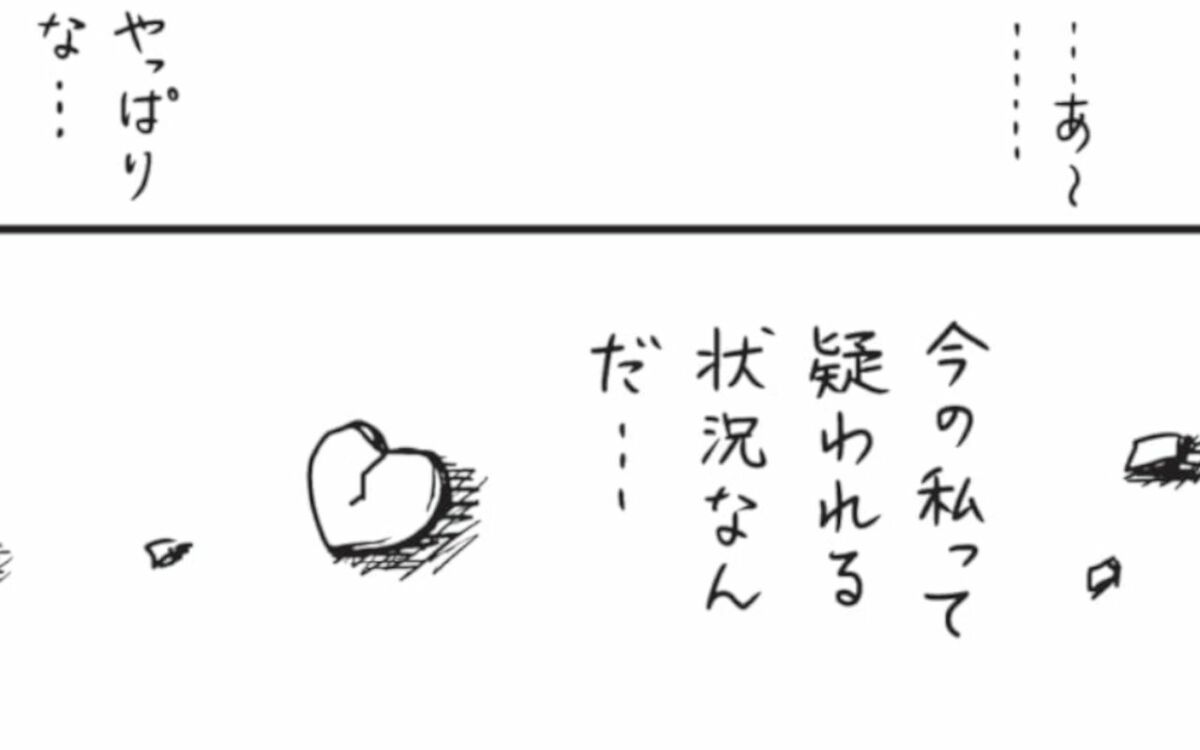 ……あ～
……
やっぱり
な…
今の私って
疑われる
状況なん
だ…